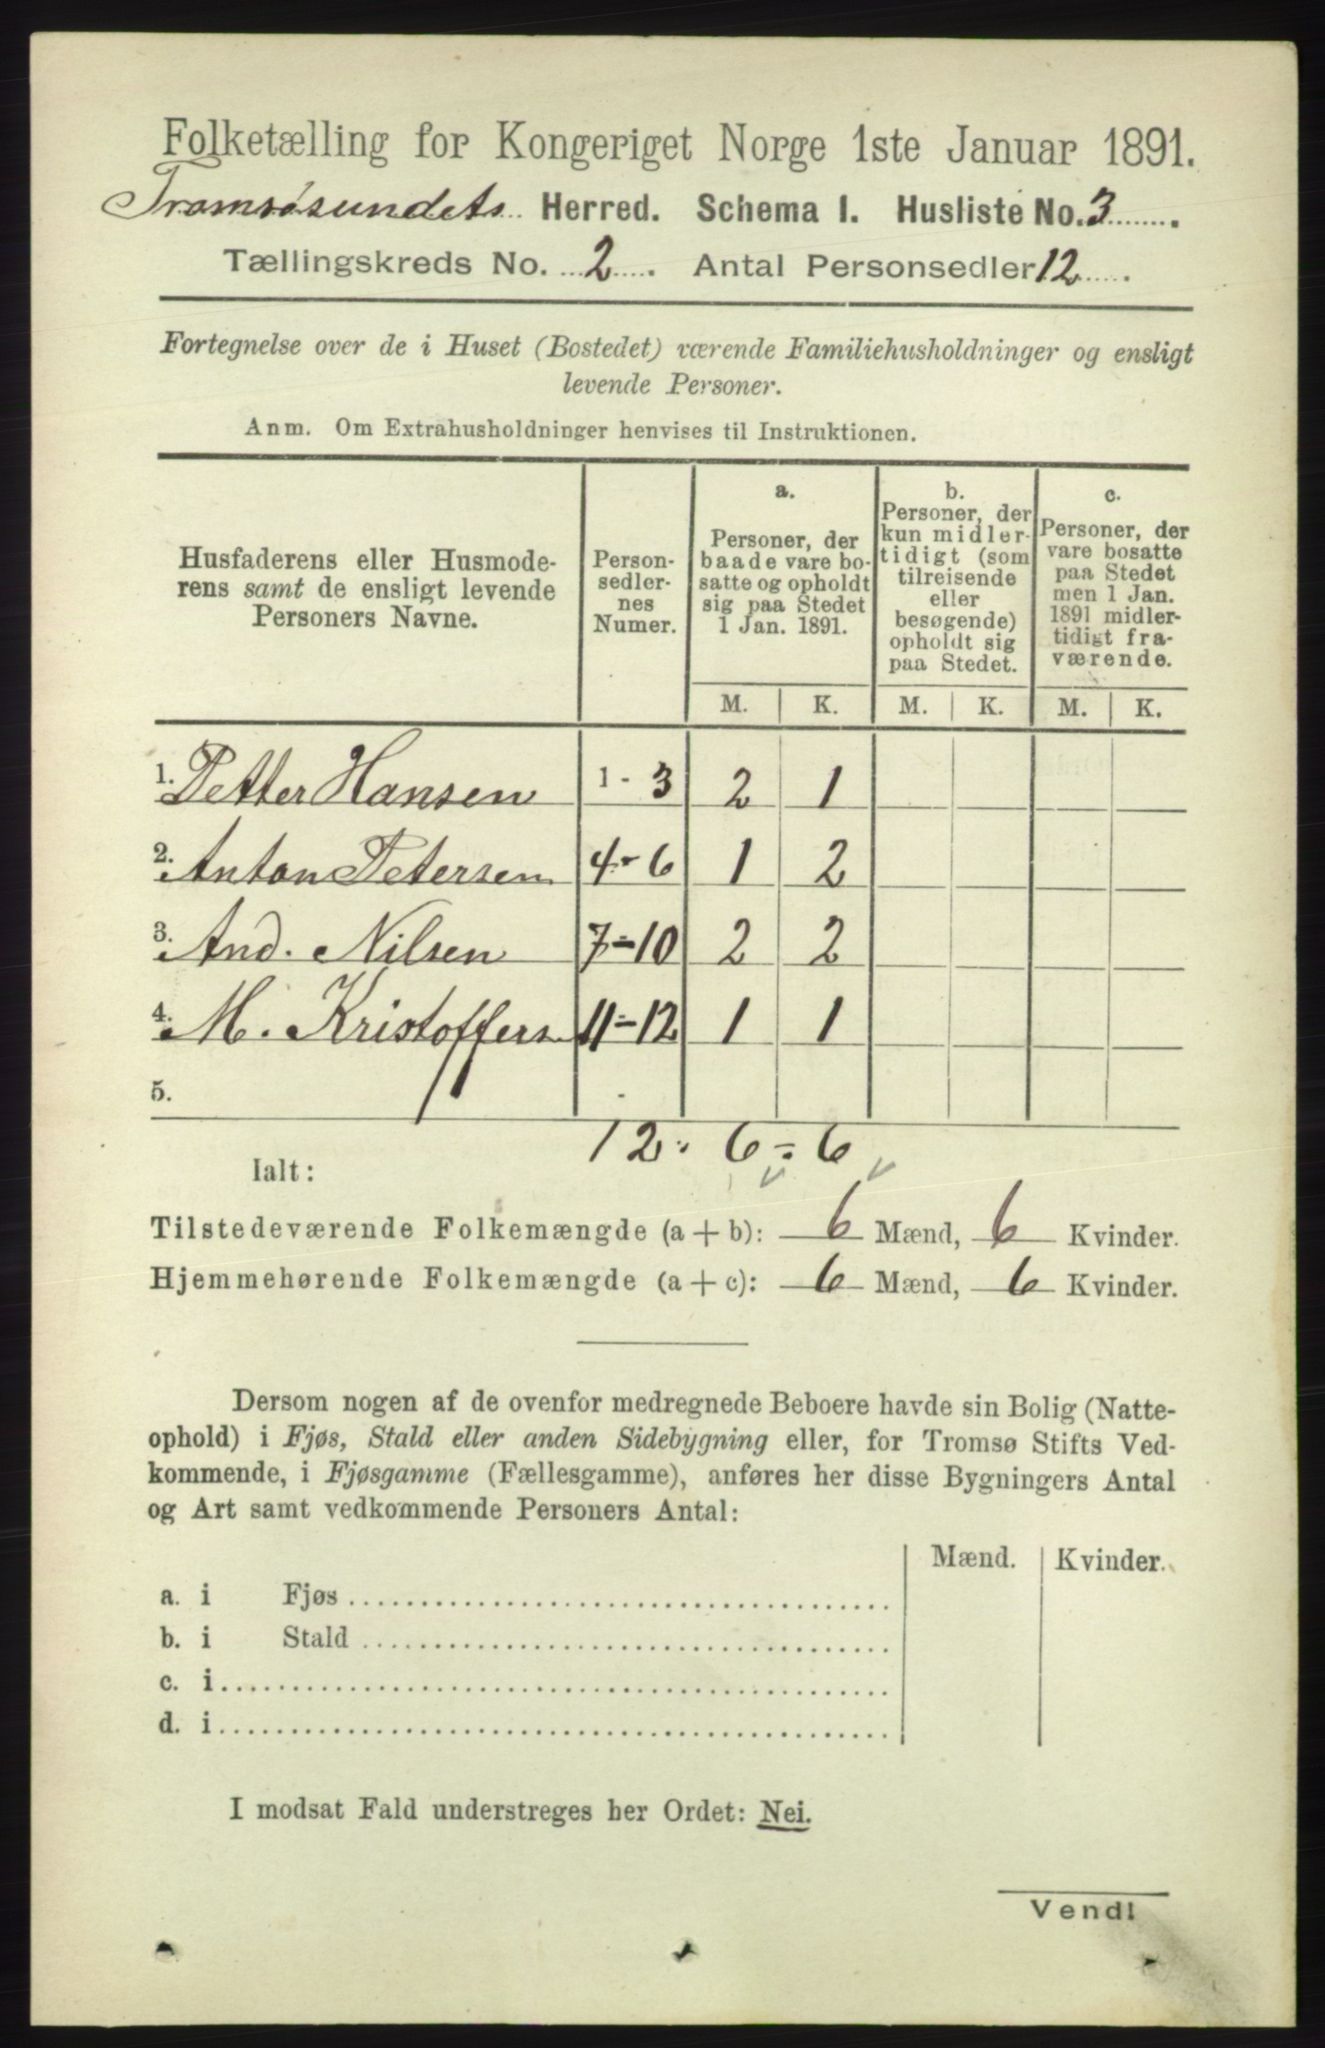 Folketælling for Kongeriget Norge 1ste Januar 1891.
Tromsøsundets Herred. Schema I. Husliste No. 3
Tællingskreds No. 2. Antal Personsedler 12.
Fortegnelse over de i Huset (Bostedet) værende Familiehusholdninger og ensligt
levende Personer.
Anm. Om Extrahusholdninger henvises til Instruktionen.
Husfaderens eller Husmode-
rens samt de ensligt levende
Personers Navne.
Person-
sedler-
nes
Numer.
a.
Personer, der
baade vare bo-
satte og opholdt
sig paa Stedet
1 Jan. 1891.
b.
Personer, der
kun midler-
tidigt (som
tilreisende
eller
besøgende)
opholdt sig
paa Stedet.
c.
Personer, der
vare bosatte
paa Stedet
men 1 Jan.
1891 midler-
tidigt fra-
værende.
M. K. M. K. M. K.
1. Petter Hansen 1 - 3 2 1
2. Anton Petersen 4 - 6 1 2
3. And. Nilsen 7 = 10 2 2
4. M. Kristoffers 11 = 12 1 1
5.
12. 6 ÷ 6
Ialt:
Tilstedeværende Folkemængde (a + b): 6 Mænd, 6 Kvinder.
Hjemmehørende Folkemængde (a + c): 6 Mænd, 6 Kvinder.
Dersom nogen af de ovenfor medregnede Beboere havde sin Bolig (Natte-
ophold) i Fjøs, Stald eller anden Sidebygning eller, for Tromsø Stifts Ved-
kommende, i Fjøsgamme (Fællesgamme), anføres her disse Bygningers Antal
og Art samt vedkommende Personers Antal:
Mænd. Kvinder.
a. i Fjøs
b. i Stald
c. i
d. i
I modsat Fald understreges her Ordet: Nei.
Vend!